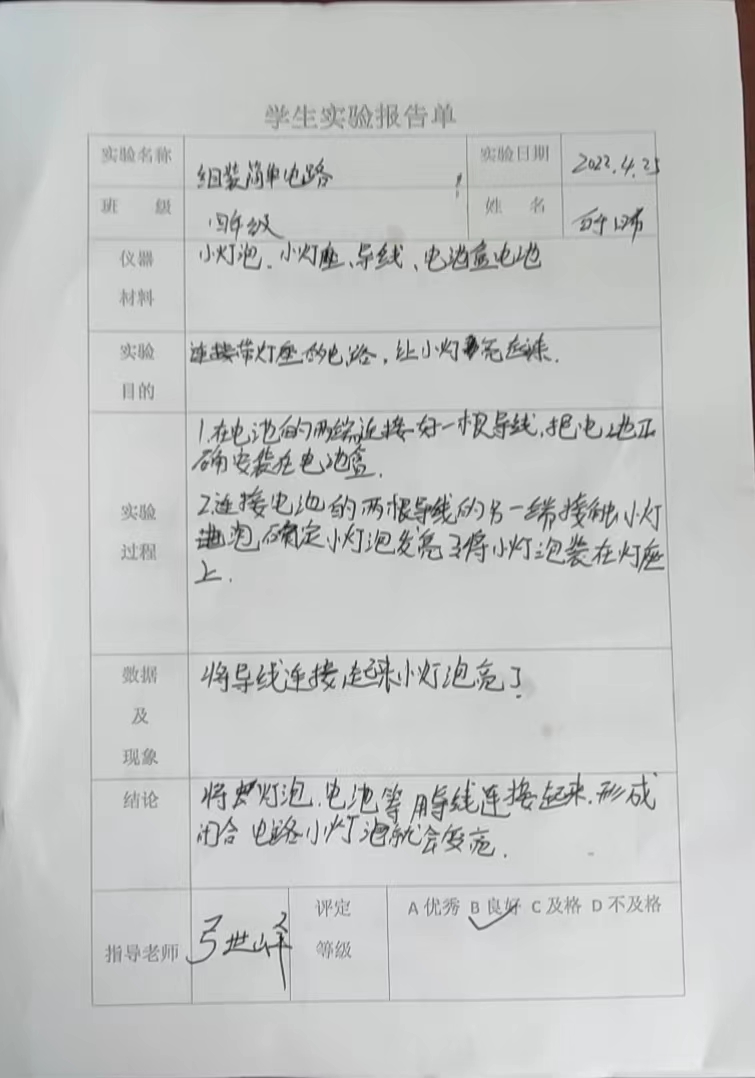 学生实验报告单
实验名称 组装简单电路 实验日期 2022.4.25
班级 四年级 姓名
仪器材料 小灯泡、小灯座、导线、电池盒电池
实验目的 连接带灯座的电路,让小灯亮起来.
实验过程
1.在电池的两端连接好一根导线,把电池正
确安装在电池盒.
2.连接电池的两根导线的另一端接触小灯
泡,确定小灯泡发亮了将小灯泡装在灯座
上.
数据及现象 将导线连接起来小灯泡亮了
结论 将灯泡、电池等用导线连接起来.形成
闭合电路小灯泡就会变亮.
指导老师 弓世峰 评定等级 A优秀 B良好 C及格 D不及格